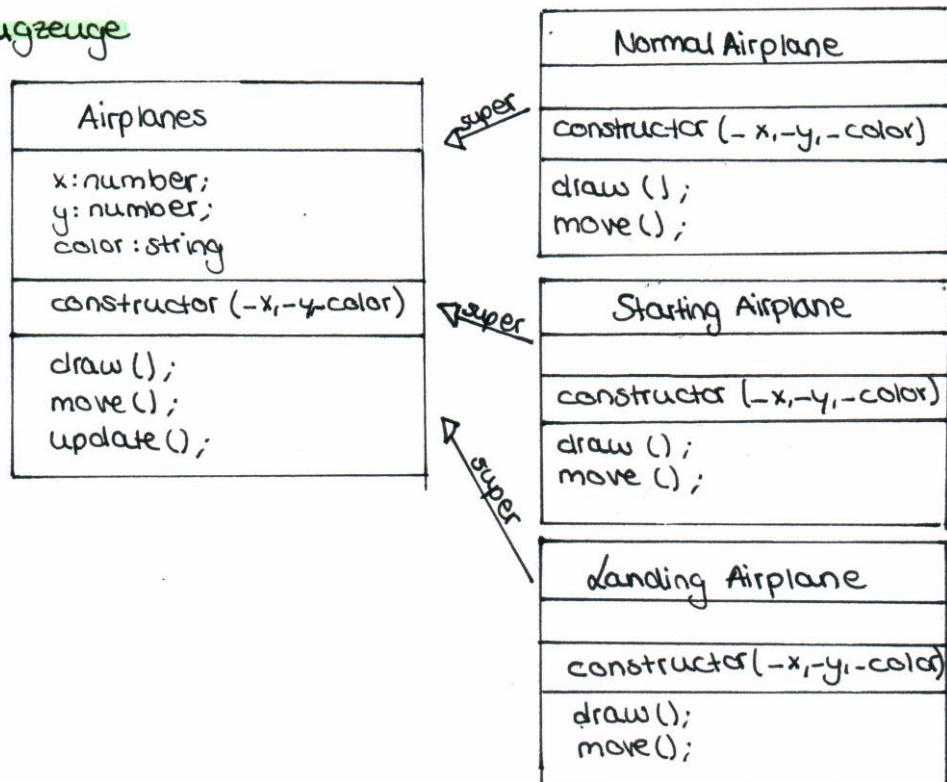 ugzeuge
Airplanes
x: number;
y: number;
color: string
constructor (_x, _y, _color)
draw ();
move ();
update ();
super
super
super
Normal Airplane
constructor (_x, _y, _color)
draw ();
move ();
Starting Airplane
constructor (_x, _y, _color)
draw ();
move ();
Landing Airplane
constructor (_x, _y, _color)
draw ();
move ();